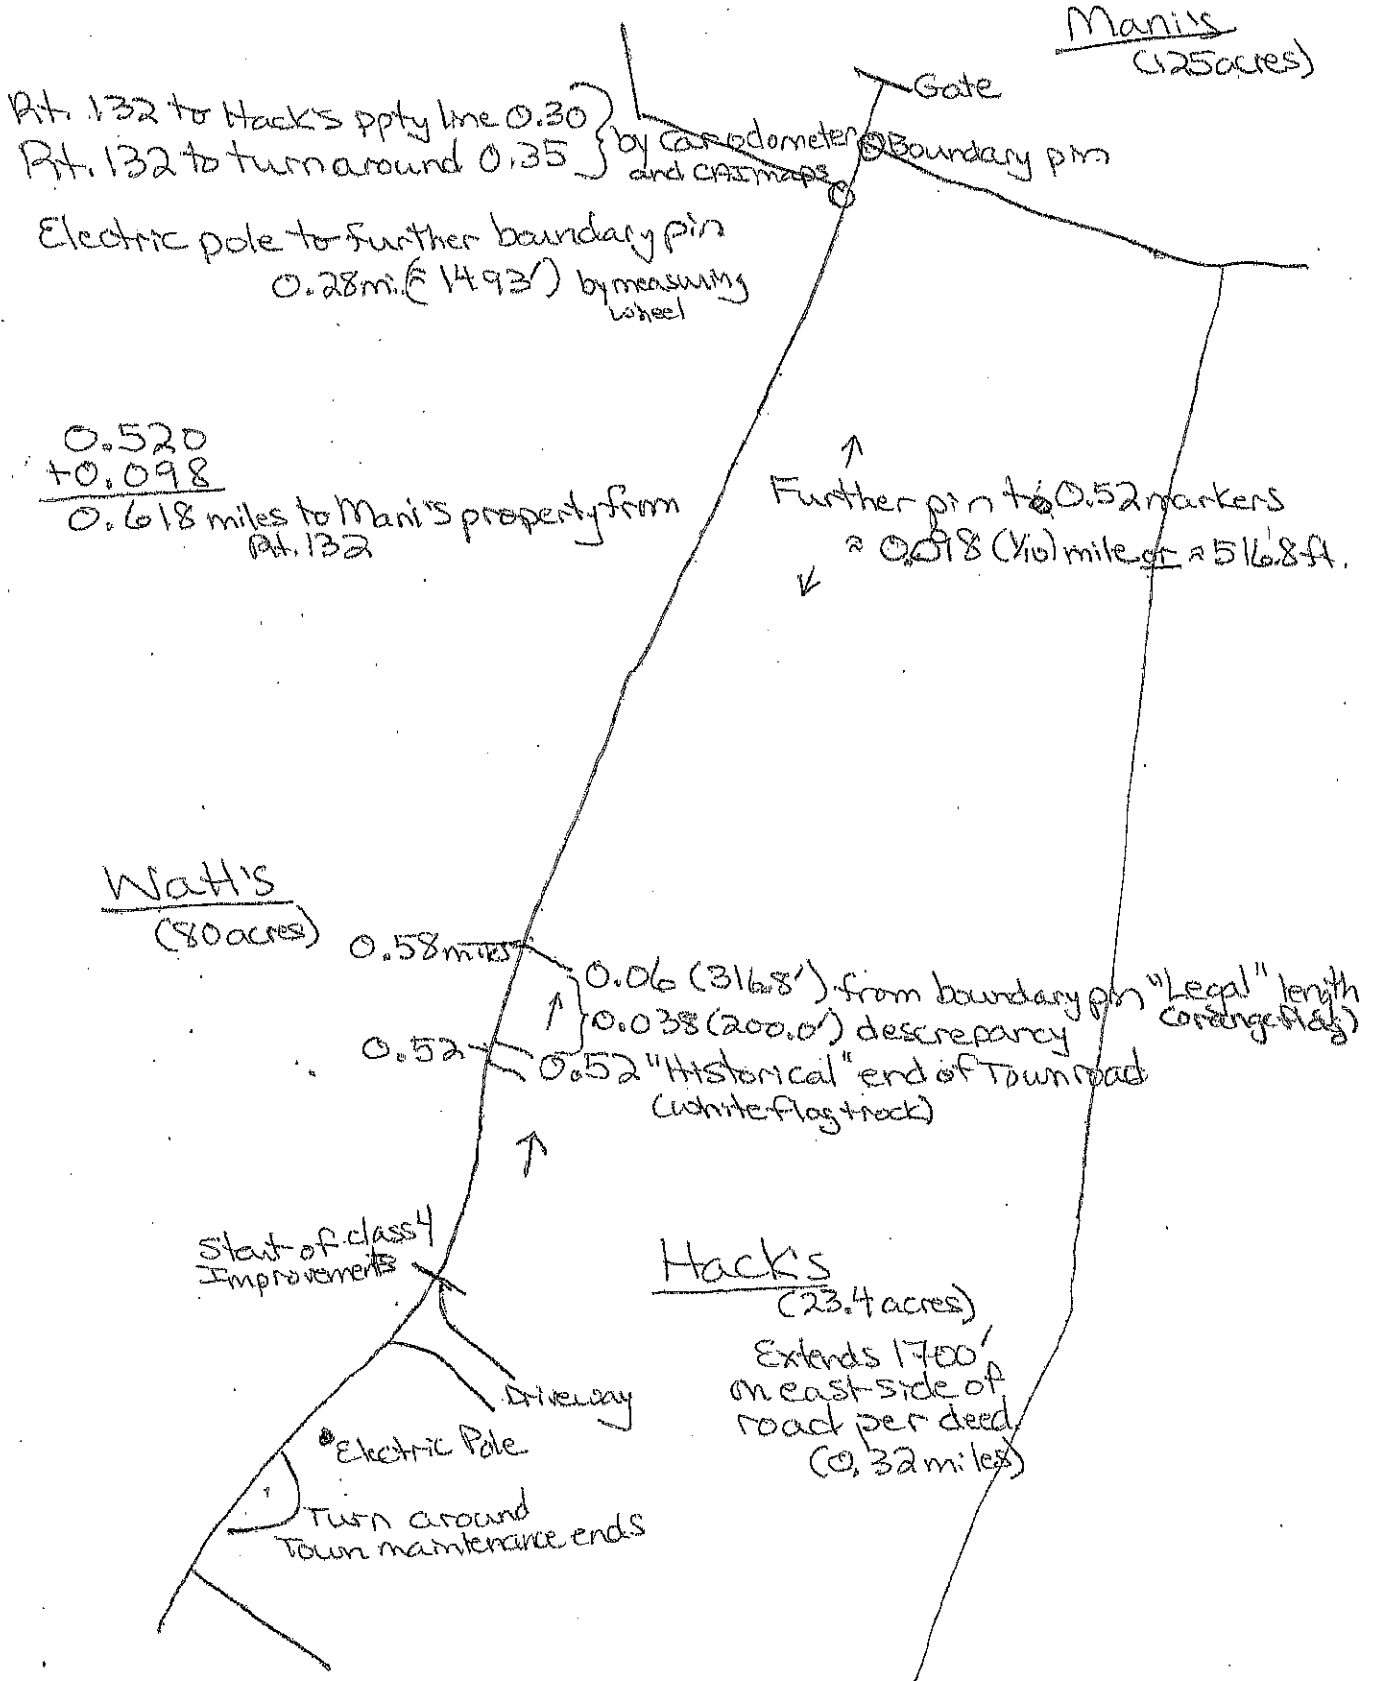 Mani's
(125 acres)
Gate
Rt. 132 to Hack's ppty line 0.30
Rt. 132 to turnaround 0.35
by Car odometer
and CAI maps
Boundary pin
Electric pole to further boundary pin
0.28 mi. (= 1493') by measuring
wheel
0.520
+0.098
0.618 miles to Mani's property from
Rt. 132
↑
Further pin to 0.52 markers
≈ 0.098 (1/10) mile or ≈ 516.8 ft.
↙
Watt's
(80 acres)
0.58 miles
0.06 (316.8') from boundary pin "Legal" length
(orange flag)
↑
0.038 (200.0') descrepancy
0.52
0.52 "Historical" end of Town road
(white flag + rock)
↑
Start of class 4
Improvements
Hack's
(23.4 acres)
Extends 1700'
on east side of
road per deed
(0.32 miles)
Driveway
Electric Pole
Turn around
Town maintenance ends